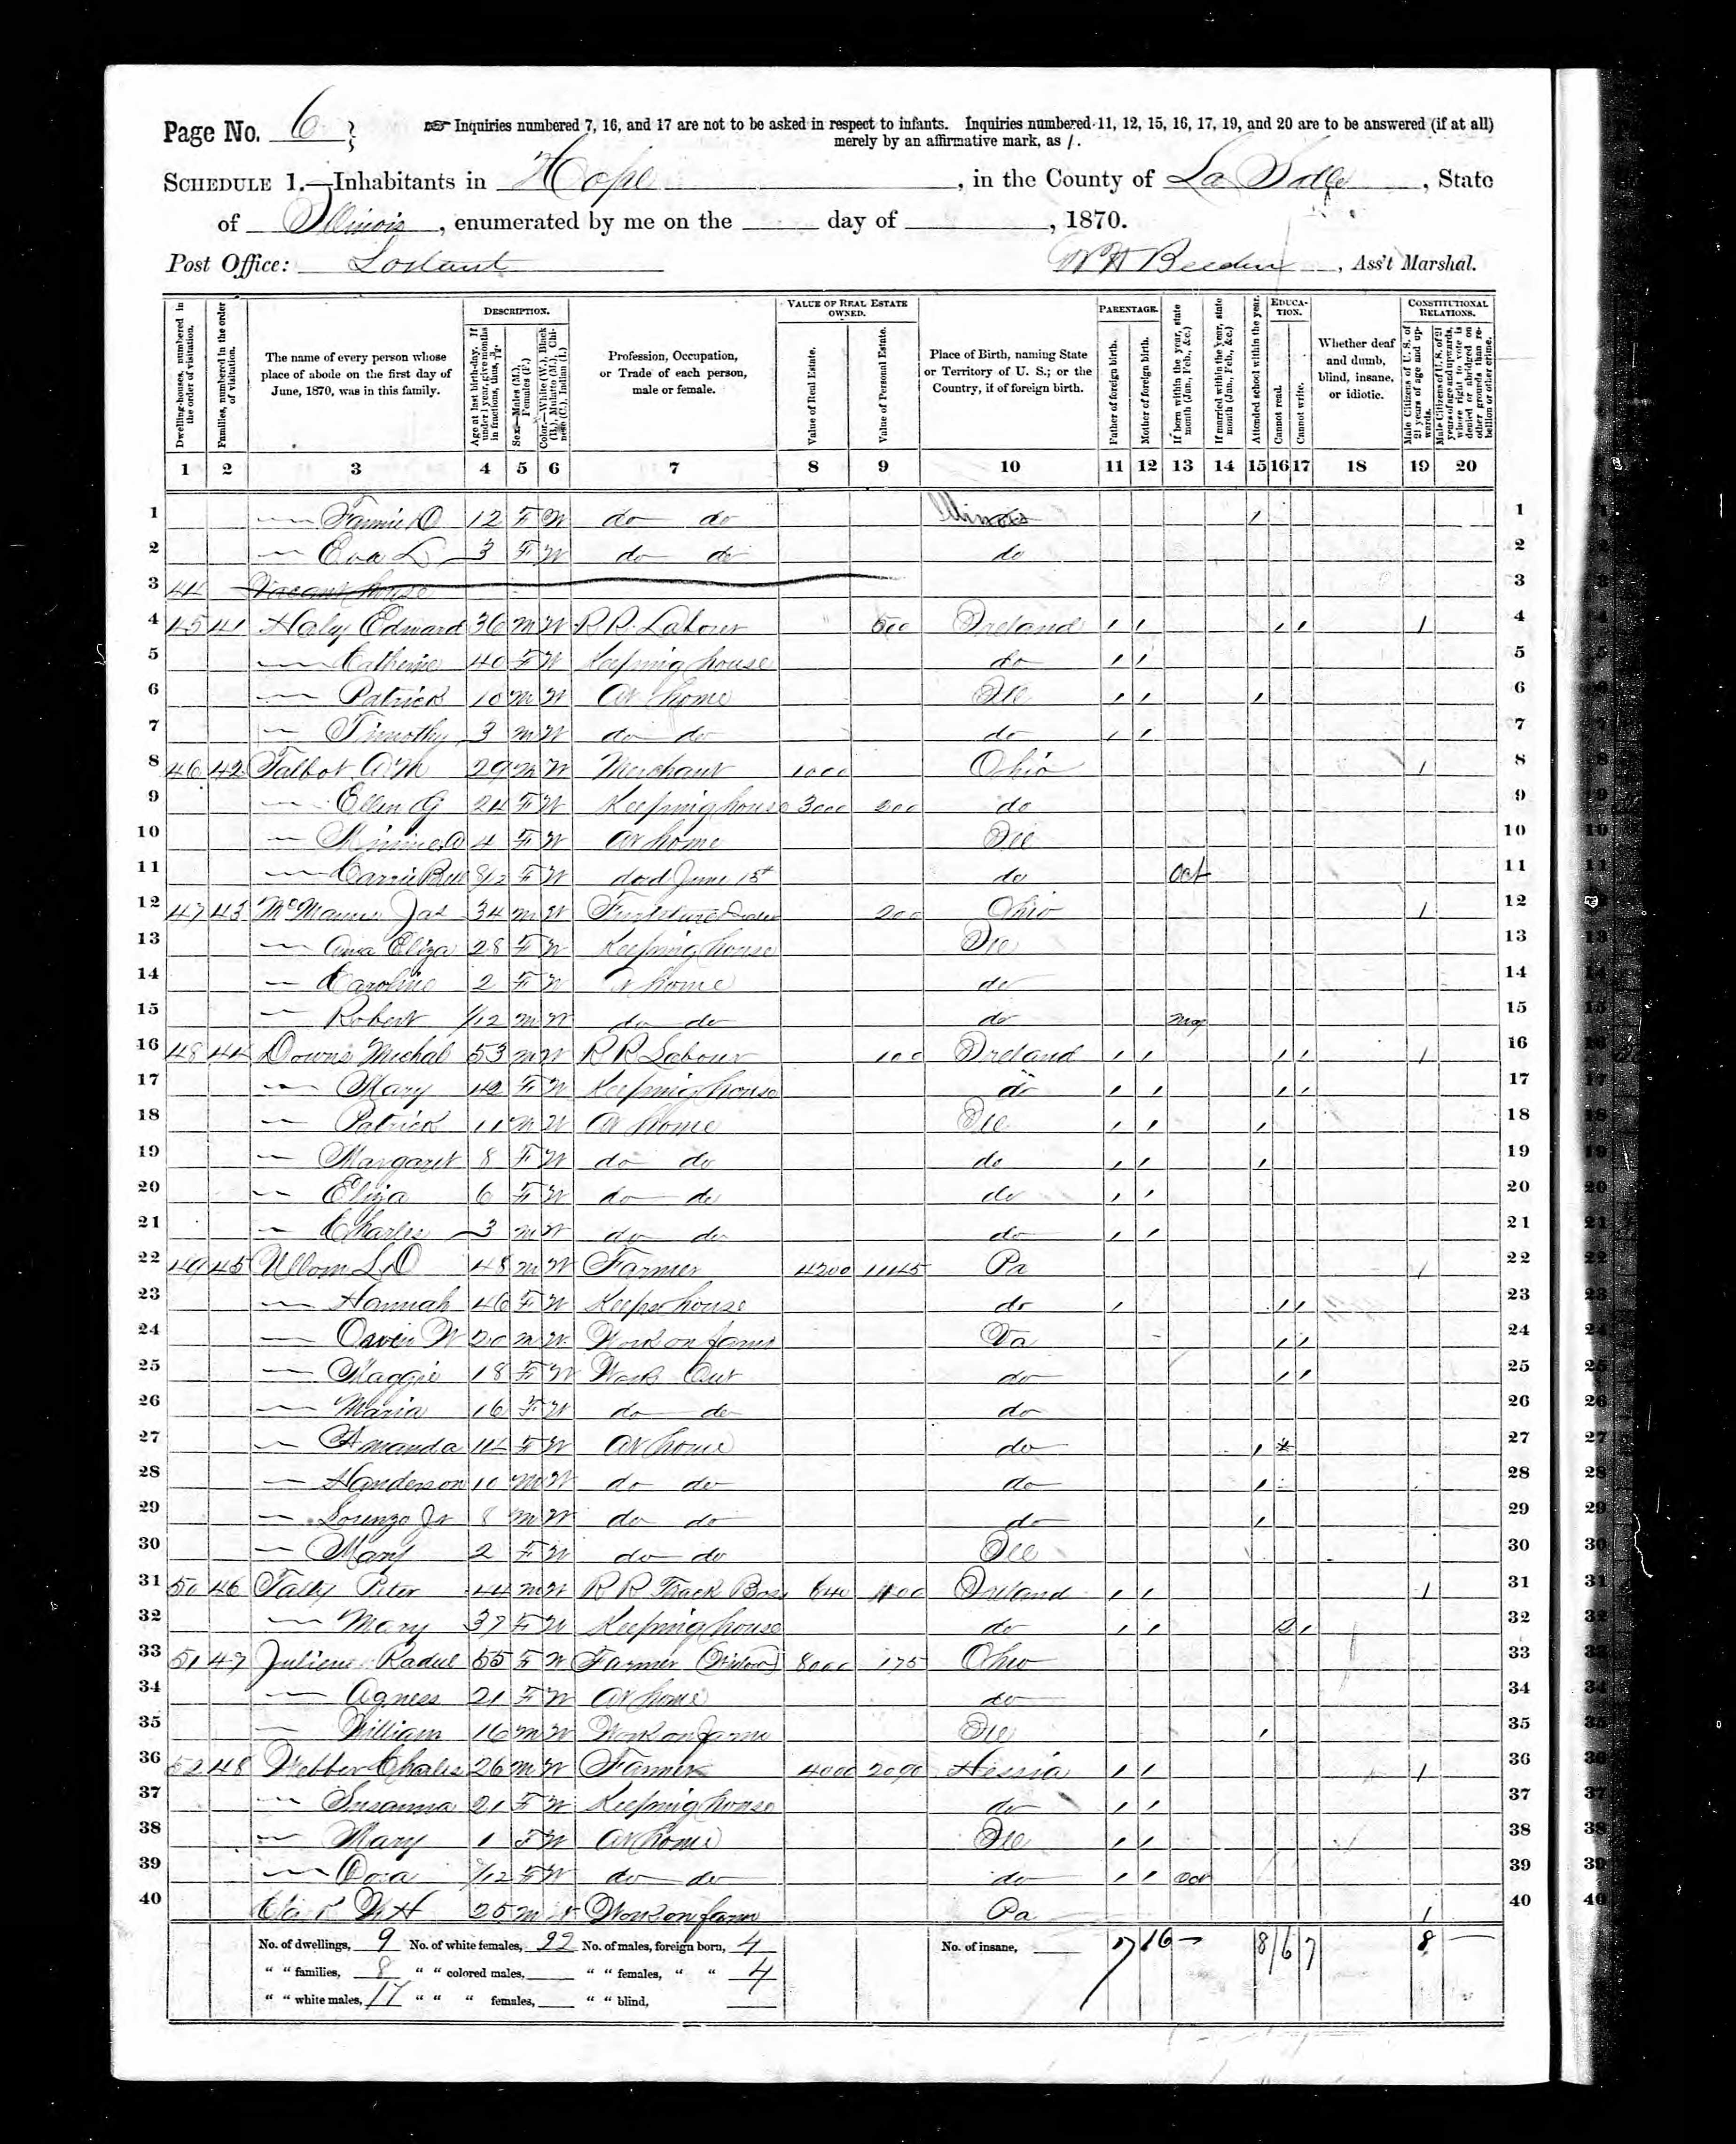 Page No. 6
Inquiries numbered 7, 16, and 17 are not to be asked in respect to infants. Inquiries numbered 11, 12, 15, 16, 17, 19, and 20 are to be answered (if at all)
merely by an affirmative mark, as /.
SCHEDULE 1.—Inhabitants in Hope, in the County of La Salle, State
of Illinois, enumerated by me on the day of , 1870.
Post Office: Lostant
W H Beeden, Ass't Marshal.
Dwelling-houses, numbered in the order of visitation.
Families, numbered in the order of visitation.
The name of every person whose place of abode on the first day of June, 1870, was in this family.
DESCRIPTION.
Age at last birth-day. If under 1 year, give months in fractions, thus, 3/12.
Sex.—Males (M.), Females (F.)
Color.—White (W.), Black (B.), Mulatto (M.), Chinese (C.), Indian (I.)
Profession, Occupation, or Trade of each person, male or female.
VALUE OF REAL ESTATE OWNED.
Value of Real Estate.
Value of Personal Estate.
Place of Birth, naming State or Territory of U. S.; or the Country, if of foreign birth.
PARENTAGE.
Father of foreign birth.
Mother of foreign birth.
If born within the year, state month (Jan., Feb., &c.)
If married within the year, state month (Jan., Feb., &c.)
Attended school within the year.
EDUCATION.
Cannot read.
Cannot write.
Whether deaf and dumb, blind, insane, or idiotic.
CONSTITUTIONAL RELATIONS.
Male Citizens of U. S. of 21 years of age and upwards.
Male Citizens of U. S. of 21 years of age and upwards, whose right to vote is denied or abridged on other grounds than rebellion or other crime.
1 2 3 4 5 6 7 8 9 10 11 12 13 14 15 16 17 18 19 20
1 — Fannie O 12 F W do do Illinois / 1
2 — Eva L 3 F W do do do 2
3 44 Vacant house 3
4 45 41 Haly Edward 36 M W R R Labour 500 Ireland / / / / / 4
5 — Catherine 40 F W Keeping house do / / 5
6 — Patrick 10 M W At home Ill / / / 6
7 — Timothy 3 M W do do do / / 7
8 46 42 Talbot A M 29 M W Merchant 1000 Ohio / 8
9 — Ellen G 24 F W Keeping house 3000 200 do 9
10 — Minnie A 4 F W At home Ill 10
11 — Carrie Bell 8/12 F W died June 15th do Oct 11
12 47 43 McManus Jas 34 M W Furniture Dealer 200 Ohio / 12
13 — Anna Eliza 28 F W Keeping house Ill 13
14 — Caroline 2 F W At home do 14
15 — Robert 1/12 M W do do do May 15
16 48 44 Downs Michal 53 M W R R Labour 100 Ireland / / / / / 16
17 — Mary 42 F W Keeping house do / / / / 17
18 — Patrick 11 M W At home Ill / / / 18
19 — Margaret 8 F W do do do / / / 19
20 — Eliza 6 F W do do do / / 20
21 — Charles 3 M W do do do / / 21
22 49 45 Ullom L D 48 M W Farmer 4200 1145 Pa / 22
23 — Hannah 46 F W Keeps house do / / / 23
24 — Owen W 20 M W Work on farm Va / / 24
25 — Maggie 18 F W Work Out do / / 25
26 — Maria 16 F W do do do 26
27 — Amanda 14 F W At home do / 27
28 — Handerson 10 M W do do do / 28
29 — Lorenzo Jr 8 M W do do do / 29
30 — Mary 2 F W do do Ill 30
31 50 46 Tally Peter 44 M W R R Track Boss 640 Ireland / / / 31
32 — Mary 37 F W Keeping house do / / / 32
33 51 47 Juliens 55 F W Farmer (Widow) 8000 175 Ohio 33
34 — Agness 21 F W At home do 34
35 — William 16 M W Work on farm Ill / 35
36 52 48 Webber Charles 26 M W Farmer 4000 2090 Hessia / / / 36
37 — Susanna 21 F W Keeping house do / / 37
38 — Mary 1 F W At home Ill / / 38
39 — /12 F W do do do / / Oct 39
40 W H 25 M W Work on farm Pa / 40
No. of dwellings, 9 No. of white females, 22 No. of males, foreign born, 4 No. of insane, 17 16 8 6 7 8
" " families, 8 " " colored males, " " females, " " 4
" " white males, 17 " " " females, " " blind,